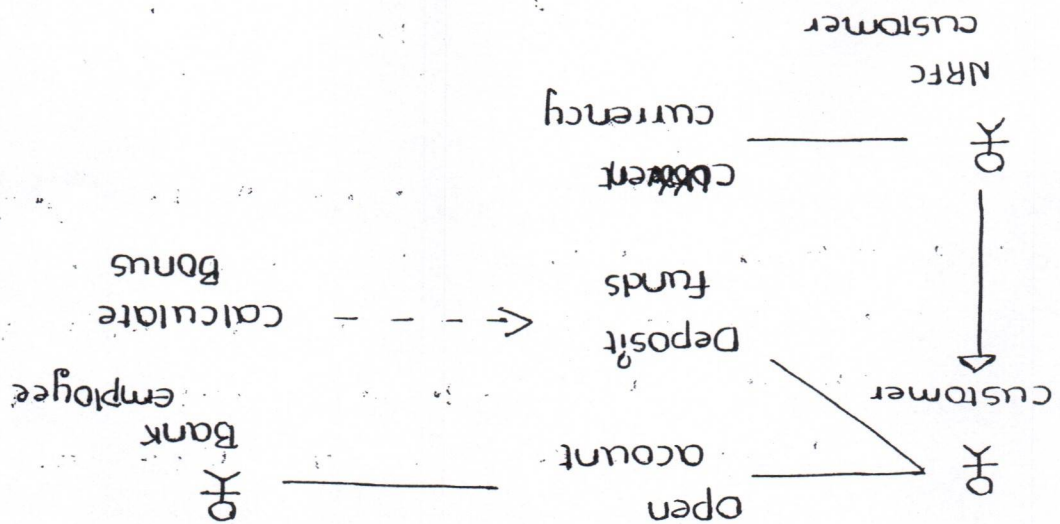 open
acount
Bank
employee
customer
Deposit
funds
calculate
Bonus
currency
NRFC
customer